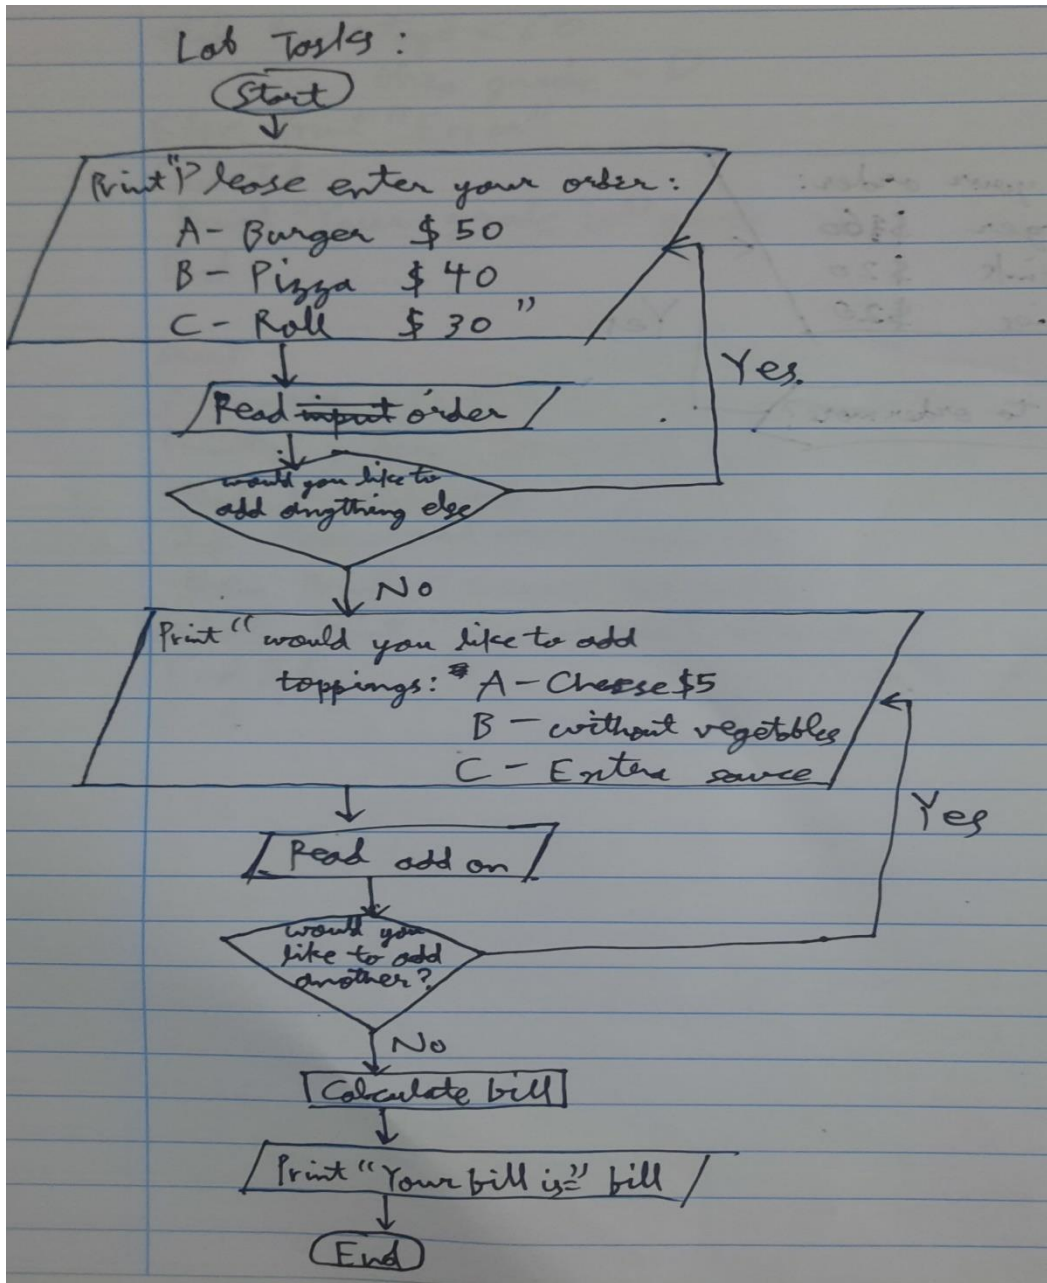 Lab Tasks:
Start
Print "Please enter your order:
A- Burger $50
B- Pizza $40
C- Roll $30"
Yes.
Read input order
would you like to
add anything else
No
Print "would you like to add
toppings: A- Cheese $5
B - without vegetables
C - Extra sauce
Yes
Read add on
would you
like to add
another?
No
Calculate bill
Print "Your bill is=" bill
End